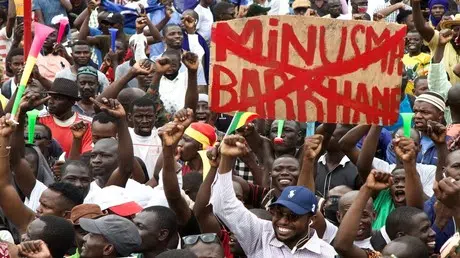 MINUSMA
BARKHANE